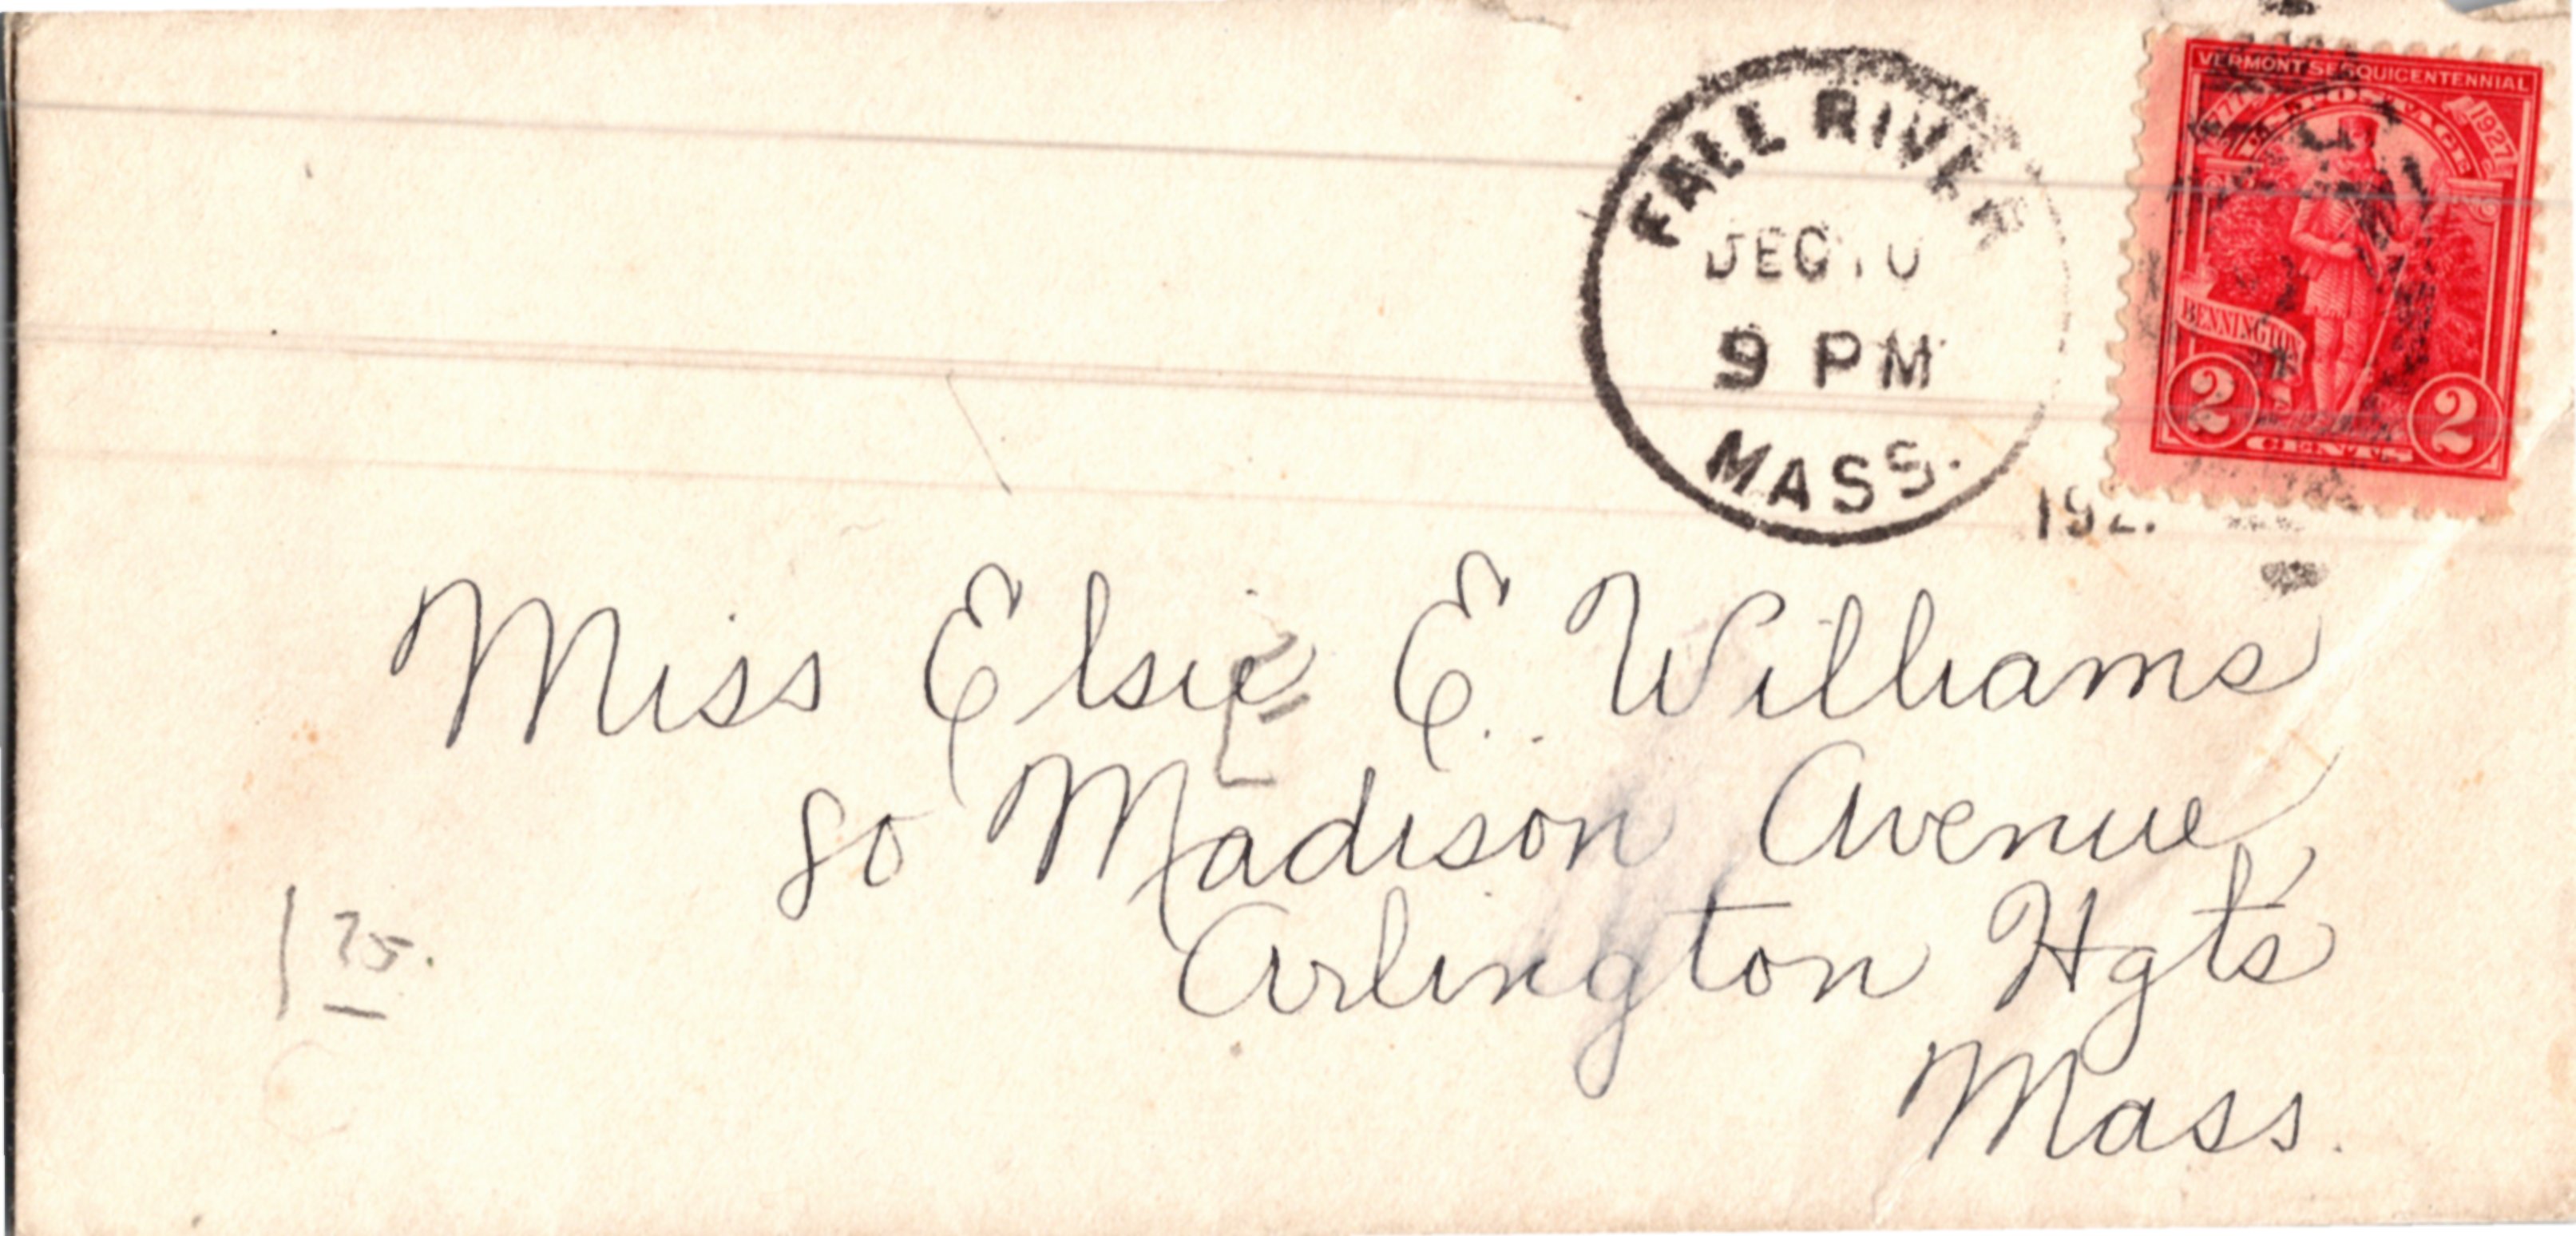 FALL RIVER
DEC 10
9 PM
MASS.
192
VERMONT SESQUICENTENNIAL
1777 U.S. POSTAGE 1927
BENNINGTON
2 CENTS 2
Miss Elsie E. Williams
80 Madison Avenue,
Arlington Hgts
Mass.
1 75.